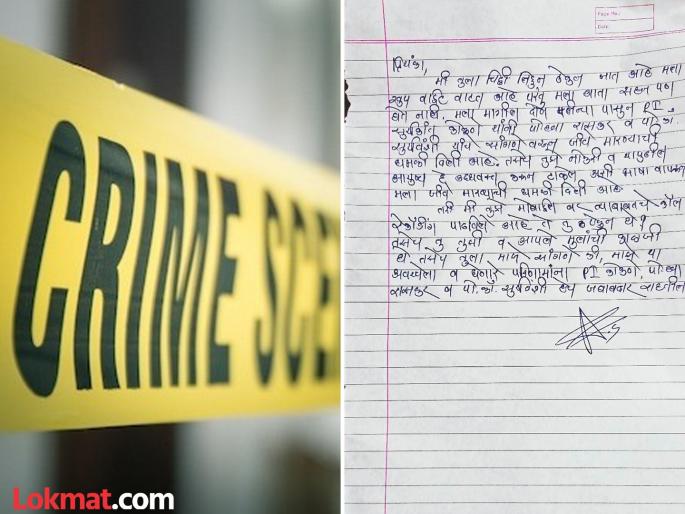 CRIME SCE
Page No.:
Date:
प्रियंका,
मी तुला चिठ्ठी लिहुन ठेवुन जात आहे मला
खुप वाईट वाटत आहे परंतु मला आता सहन पण
होत नाही. मला मागील दोन महिन्या पासुन PI
सुर्यकांत कोकणे यांनी पोहवा रासकर व पो.कॉ.
सुर्यवंशी यांचे सांगणे वरून जीवे मारण्याची
धमकी दिली आहे. तसेच तुझे नोकरी व यापुढील
आयुष्य हे उध्वस्त करून टाकुन अशी भाषा वापरून
मला जीवे मारण्याची धमकी दिली आहे
तरी मी तुझे मोबाईल वर त्याबाबतचे कॉल
रेकॉर्डींग पाठविले आहे ते तु ठेवुन घे?
तसेच तु तुझी व आपले मुलांची काळजी
घे तसेच तुला माझे सांगणे की, माझे या
अवस्थेला व होणाऱ परिणामांना PI कोकणे, पोहवा
रासकर व पो.कॉ. सुर्यवंशी हेच जबाबदार राहतील
Lokmat.com